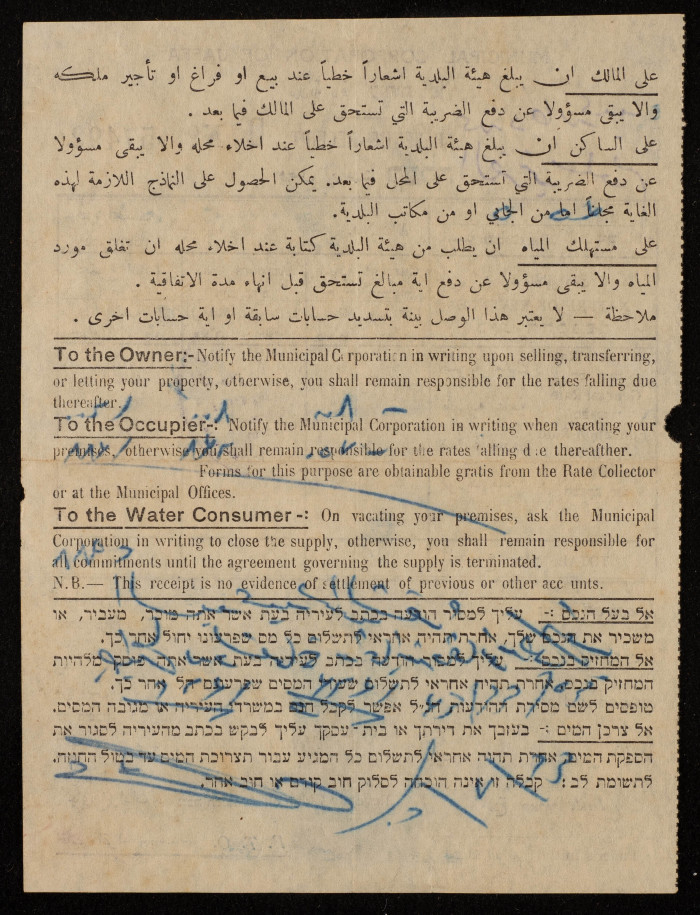 على المالك ان يبلغ هيئة البلدية اشعاراً خطياً عند بيع او فراغ او تأجير ملكه
والا يبقى مسؤولا عن دفع الضريبة التي تستحق على المالك فيما بعد .
على الساكن ان يبلغ هيئة البلدية اشعاراً خطياً عند اخلاء محله والا يبقى مسؤولا
عن دفع الضريبة التي استحق على المحل فيما بعد. يمكن الحصول على النماذج اللازمة لهذه
الغاية مجاناً اما من الجابي او من مكاتب البلدية.
على مستهلك المياه ان يطلب من هيئة البلدية كتابة عند اخلاء محله ان تغلق مورد
المياه والا يبقى مسؤولا عن دفع اية مبالغ تستحق قبل انهاء مدة الاتفاقية .
ملاحظة — لا يعتبر هذا الوصل بينة بتسديد حسابات سابقة او اية حسابات اخرى .
To the Owner:- Notify the Municipal Corporation in writing upon selling, transferring,
or letting your property, otherwise, you shall remain responsible for the rates falling due
thereafter.
To the Occupier-: Notify the Municipal Corporation in writing when vacating your
premises, otherwise you shall remain responsible for the rates falling due thereafther.
Forms for this purpose are obtainable gratis from the Rate Collector
or at the Municipal Offices.
To the Water Consumer -: On vacating your premises, ask the Municipal
Corporation in writing to close the supply, otherwise, you shall remain responsible for
all commitments until the agreement governing the supply is terminated.
N.B.— This receipt is no evidence of settlement of previous or other accounts.
אל בעל הנכס :- עליך למסיר הודעה בכתב לעיריה בעת אשר אתה מוכר, מעביר, או
משכיר את הנכס שלך, אחרת תהיה אחראי לתשלום כל מס שפרעונו יחול אחר כך.
אל המחזיק בנכס :- עליך למסור הודעה בכתב לעיריה בעת אשר אתה פוסק מלהיות
המחזיק בנכס, אחרת תהיה אחראי לתשלום המסים אחר כך.
טופסים לשם מסירת ההודעות הנ״ל אפשר לקבל חנם במשרדי העיריה או מגובה המסים.
אל צרכן המים :- בעזבך את דירתך או בית-עסקך עליך לבקש בכתב מהעיריה לסגור את
הספקת המים, אחרת תהיה אחראי לתשלום כל המגיע עבור תצרוכת המים עד בטול החוזה.
לתשומת לב : קבלה זו אינה הוכחה לסלוק חוב קודם או חוב אחר.